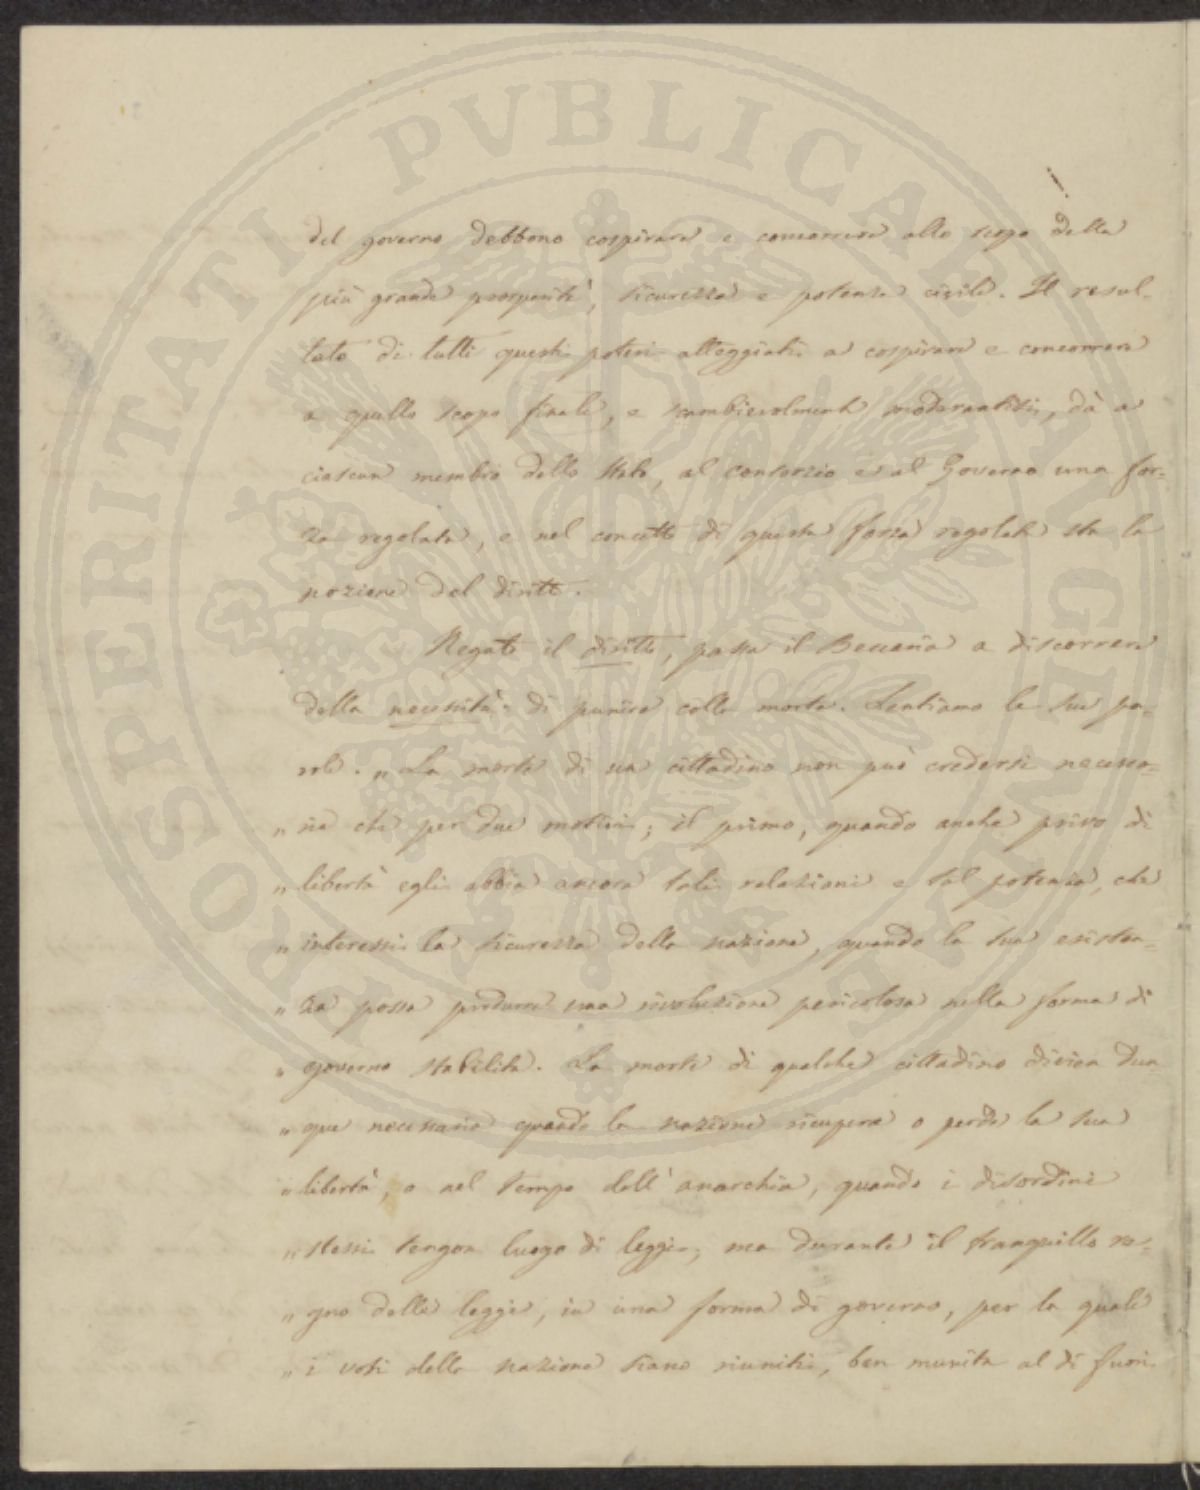 PROSPERITATI PUBLICAE AUGENDAE
del governo debbono cospirare e concorrere allo scopo della
più grande prosperità, sicurezza e potenza civile. Il resul-
tato di tutti questi poteri atteggiati a cospirare e concorrere
a quello scopo finale, e scambievolmente moderantisi, dà a
ciascun membro dello Stato, al consorzio e al Governo una for-
za regolata, e nel concetto di questa forza regolata sta la
nozione del diritto.
Negato il diritto, passa il Beccaria a discorrere
della necessità di punire colla morte. Sentiamo le sue pa-
role. „ La morte di un cittadino non può credersi necessa-
„ ria che per due motivi; il primo, quando anche privo di
„ libertà egli abbia ancora tali relazioni e tal potenza, che
„ interessi la sicurezza della nazione, quando la sua esisten-
„ za possa produrre una rivoluzione pericolosa nella forma di
„ governo stabilita. La morte di qualche cittadino divien dun-
„ que necessaria quando la nazione ricupera o perde la sua
„ libertà, o nel tempo dell'anarchia, quando i disordini
„ stessi tengon luogo di leggi; ma durante il tranquillo re-
„ gno delle leggi, in una forma di governo, per la quale
„ i voti della nazione siano riuniti, ben munita al di fuori